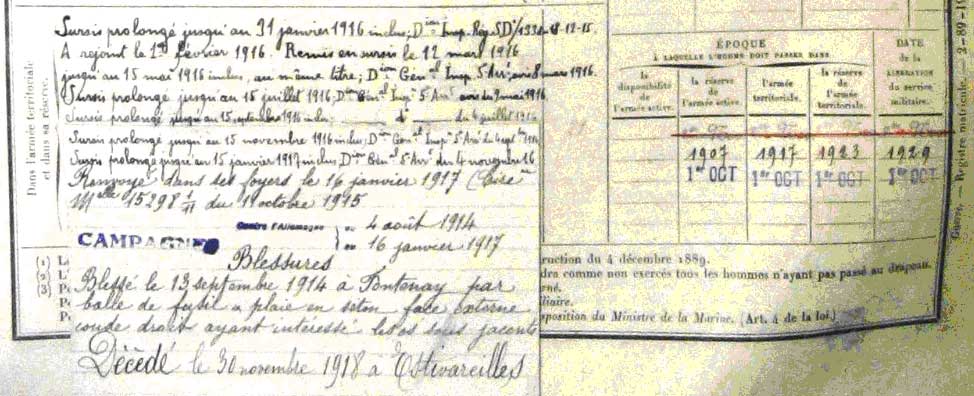 Sursis prolongé jusqu'au 31 janvier 1916 inclus; Dion Insp. Rég. S.D/ 18-12-15.
A rejoint le 1er février 1916. Remis en sursis le 12 mars 1916
jusqu'au 15 mai 1916 inclus, au même titre; Dion Génal Insp. 5e Arrt avis 8 mars 1916.
Sursis prolongé jusqu'au 15 juillet 1916; Dion Génal Insp. 5e Arrt avis du 9 mai 1916.
Sursis prolongé jusqu'au 15 septembre 1916 inclus; d° du 4 juillet 1916
Sursis prolongé jusqu'au 15 novembre 1916 inclus; Dion Génal Insp 5e Arrt du 4 septbre 1916
Sursis prolongé jusqu'au 15 janvier 1917 inclus Dion Génal 5e Arrt du 4 novembre 16
Renvoyé dans ses foyers le 16 janvier 1917 (Circre
Mlle 15298 1/11 du 1 octobre 1915
CAMPAGNES
Contre l'Allemagne
du 4 août 1914
au 16 janvier 1917
Blessures
Blessé le 13 septembre 1914 à Fontenay par
balle de fusil "plaie en séton face externe
coude droit ayant intéressé les os sous jacents
Décédé le 30 novembre 1918 à Estivareilles
Dans l'armée territoriale
et dans sa réserve.
(1)
(2)
(3)
ÉPOQUE
À LAQUELLE L'HOMME DOIT PASSER DANS
la
disponibilité
de
l'armée active.
la réserve
de
l'armée active.
l'armée
territoriale.
la réserve
de
l'armée
territoriale.
DATE
de la
LIBÉRATION
du service
militaire.
1907 1917 1923 1929
1er OCT 1er OCT 1er OCT 1er OCT
ruction du 4 décembre 1889.
dra comme non exercés tous les hommes n'ayant pas passé au drapeau.
rné.
iliaire.
sposition du Ministre de la Marine. (Art. 4 de la loi.)
Guerre. — Registre matricule. — 2-89-19